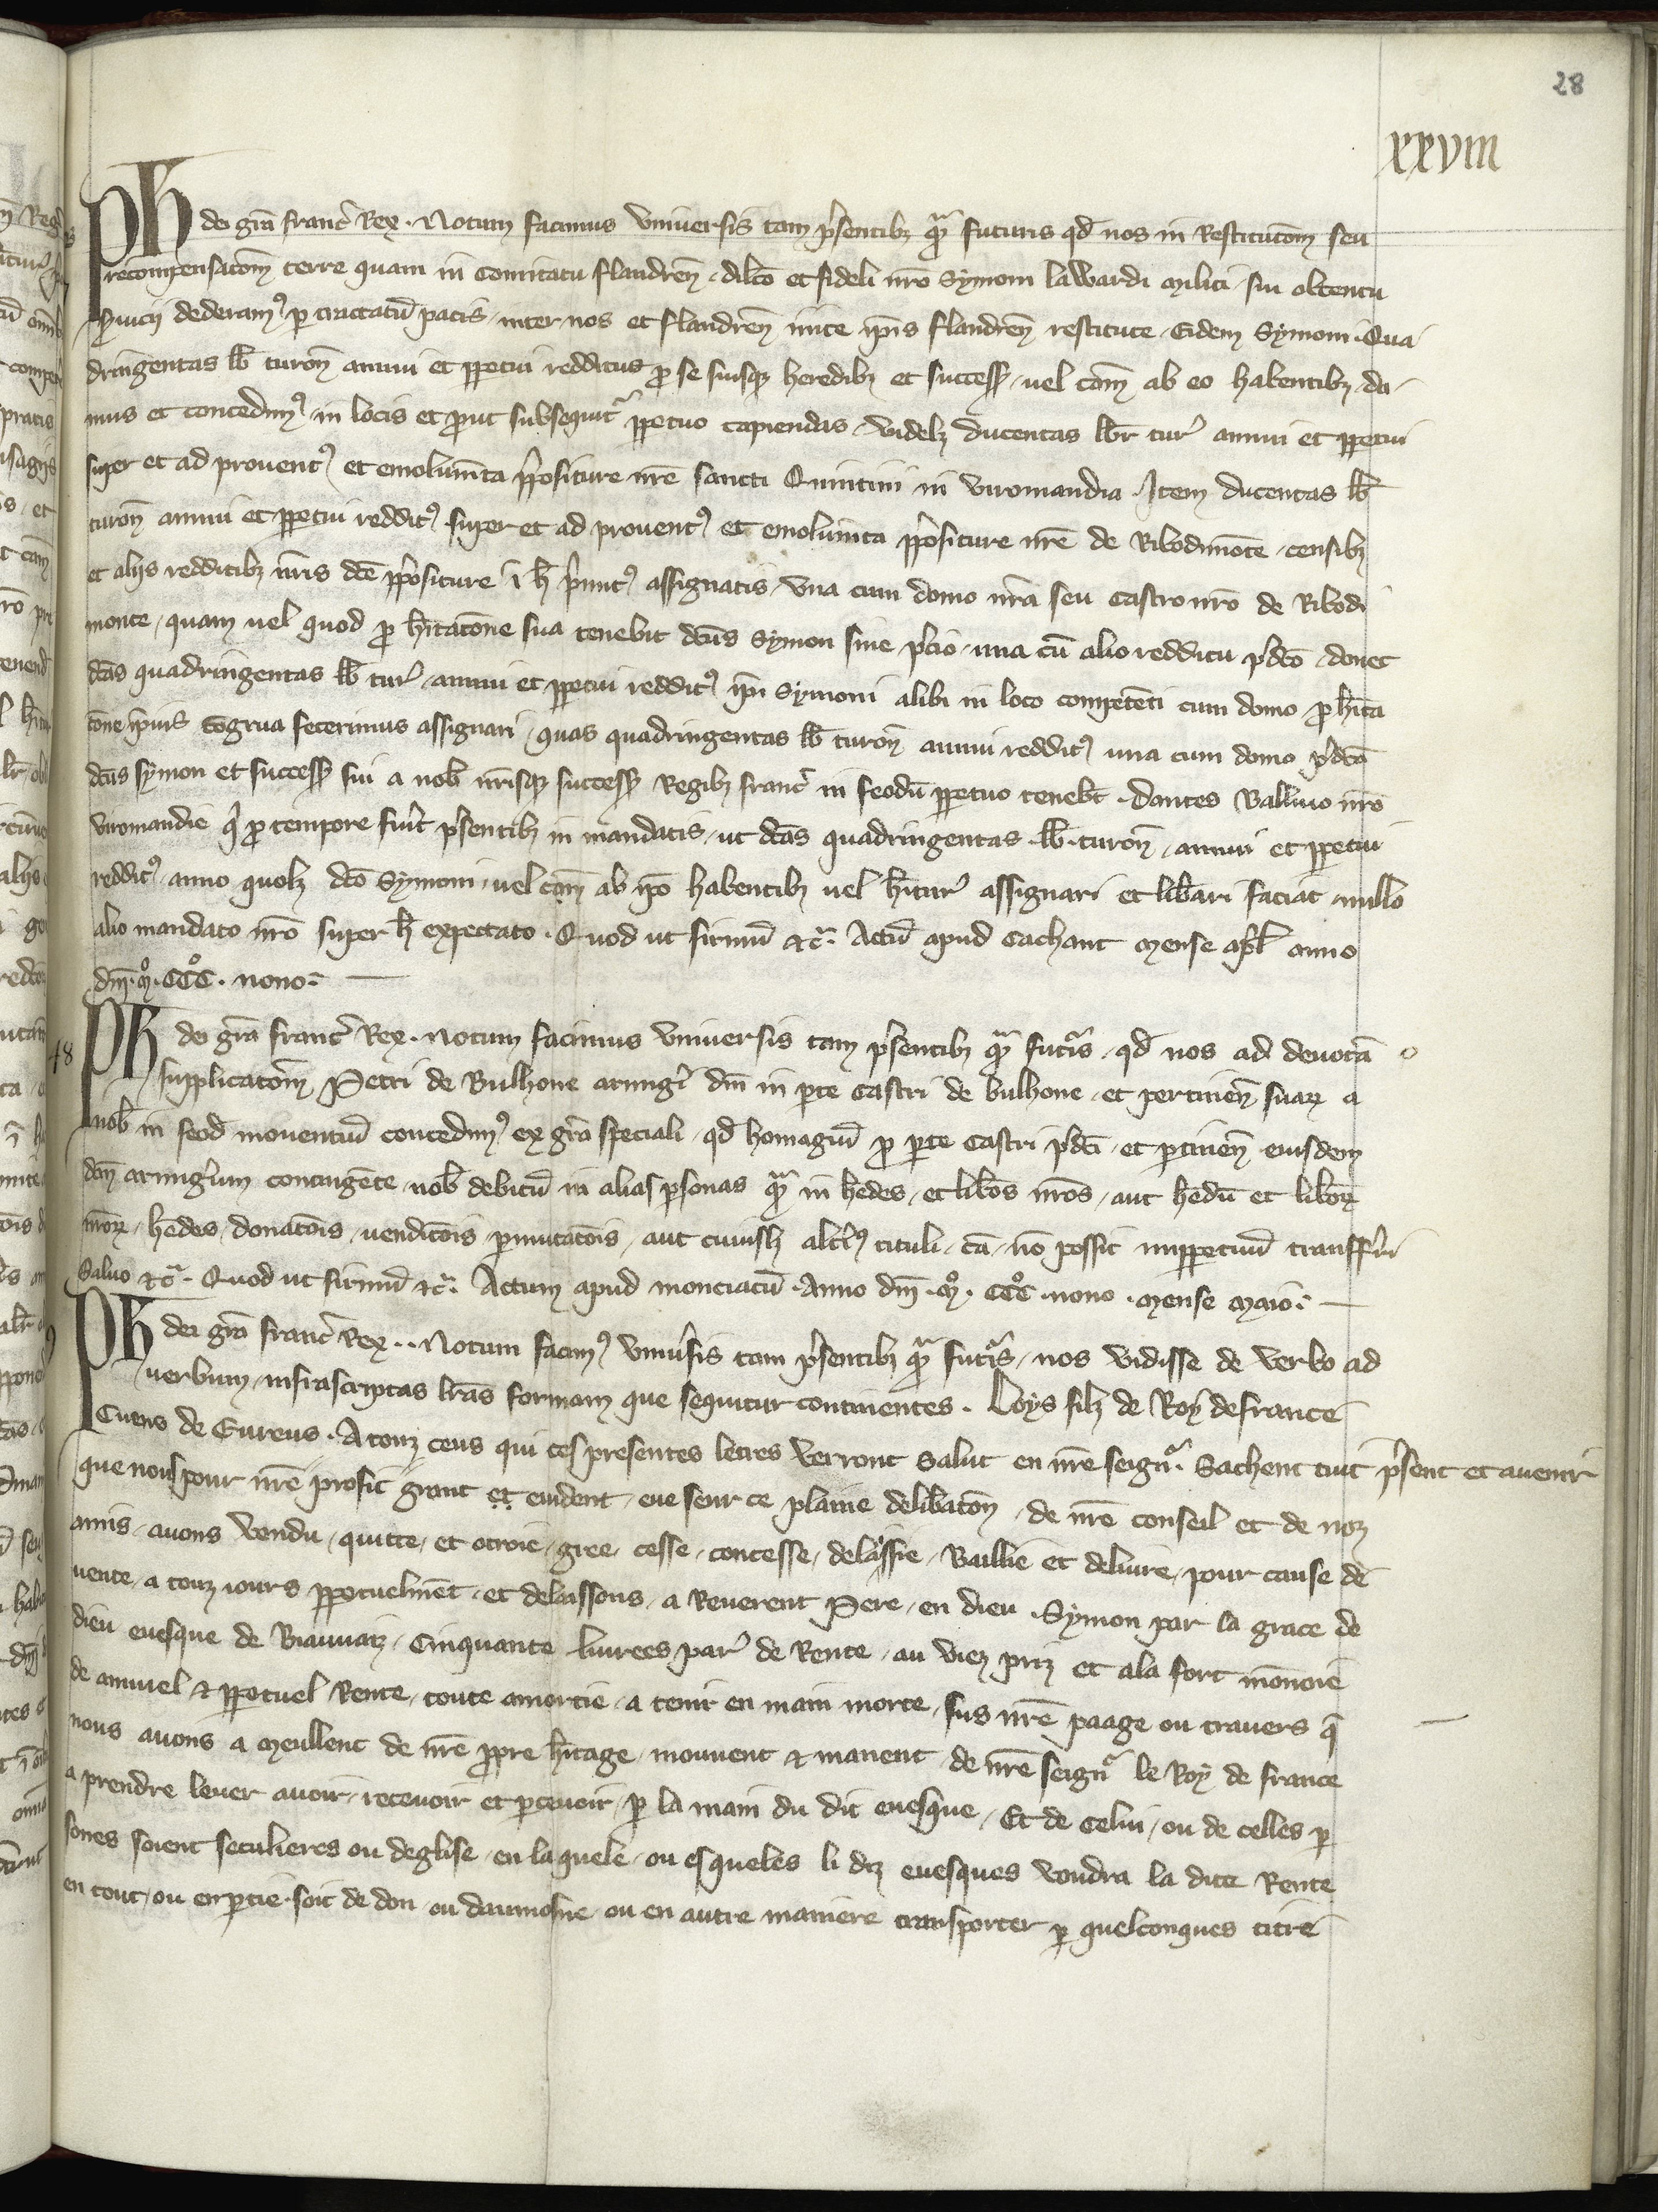 28
xxviii
Ph dei gra franc Rex. Notum facimus vniuersis tam presentibz qm futuris qd nos in Restitutom seu
recompensatom terre quam in Comitatu flandren dilco et fideli nro Symoni lawardi militi sui obtentu
seruicii dederamus per tractatu pacis inter nos et flandren inite ipis flandren restitute Eidem Symoni Qua
dringentas lb turon annui et ppetui redditus pro se suisqz heredibz et success vel cam ab eo habentibz da
mus et concedimus in locis et prout subsequitr ppetuo capiendas videlz ducentas libr tur annui et ppetui
super et ad prouentus et emolumta ppositure nre sancti Quintini in viromandia Item ducentas lb
turon annui et ppetui redditus super et ad prouentus et emolumta ppositure nre de Ribodimote censibz
et alijs redditibz nris dce ppositure assignatis vna cum domo nra seu castro nro de Ribodi
monte quam vel quod pro hitacone sua tenebit dcus Symon sine pcio vna cu alio redditu pdco donec
dcas quadringentas lb tur annui et ppetui redditus ipi Symoni alibi in loco competeti cum domo pro hita
cone ipius cogrua fecerimus assignari quas quadringentas lb turon annui redditus una cum domo pdca
dcus Symon et success sui a nob nrisqz success Regibz franc in feodu ppetuo tenebt. Dantes Balliuo nro
viromandie qi pro tempore fuit psentibz in mandatis ut dcas quadringentas lb turon annui et ppetui
redditus anno quolz dco Symoni vel cam ab ipo habentibz vel hitur assignari et libari faciat nullo
alio mandato nro super h expectato. Quod ut firmu etc. Actu apud Cachant mense apl anno
dni mo CCCo nono.
48
Ph dei gra franc Rex. Notum facimus vniuersis tam psentibz qm futris qd nos ad deuotam
supplicatom Petri de Bulhone armigi dni in pte castri de bulhone et pertinen suarz a
nob in feod mouentiu concedimus ex gra speciali qd homagiu pro pte castri pdci et ptinen eiusdem
dcm armigerum contingete nob debitu in alias psonas qm in hedes et libos nros aut hedu et liborz
nrorz hedes donatois venditois pmutatois aut cuiuslz altius tituli ca no possit imppetuu transferri
Saluo etc. Quod ut firmu etc. Actum apud monciacu Anno dni mo CCCo nono mense maio.
Ph dei gra franc Rex. Notum facimus vniuersis tam psentibz qm futris nos vidisse de verbo ad
verbum infrascriptas lras formam que sequitur continentes. Loys filz de Roy de france
Cuens de Eureus. A touz ceus qui ces presentes letres verront salut en nre seignr. Sachent tuit present et auenir
que nous pour nre profit grant et euident eue seur ce plaine delibaton de nre conseil et de noz
amis auons vendu quitte et otroie gree cesse concesse delassie Baillie et deliure pour cause de
vente a touz iours ppetuelmet et delaissons a Reuerent Pere en dieu Symon par la grace de
dieu euesque de Biauuaiz Cinquante liurees par de Rente au viez priz et a la fort monoie
de annuel et ppetuel Rente toute amortie a tenir en main morte sus nre paage ou trauers q
nous auons a meullent de nre ppre hitage mouuent et manent de nre seignr le Roy de france
a prendre leuer auoir receuoir et pceuoir p la main du dit euesque Et de celui ou de celles p
sones soient seculieres ou deglise en la quele ou esqueles li diz euesques voudra la dite Rente
en tout ou en ptie soit de don ou daumosne ou en autre maniere transporter p quelconques titre